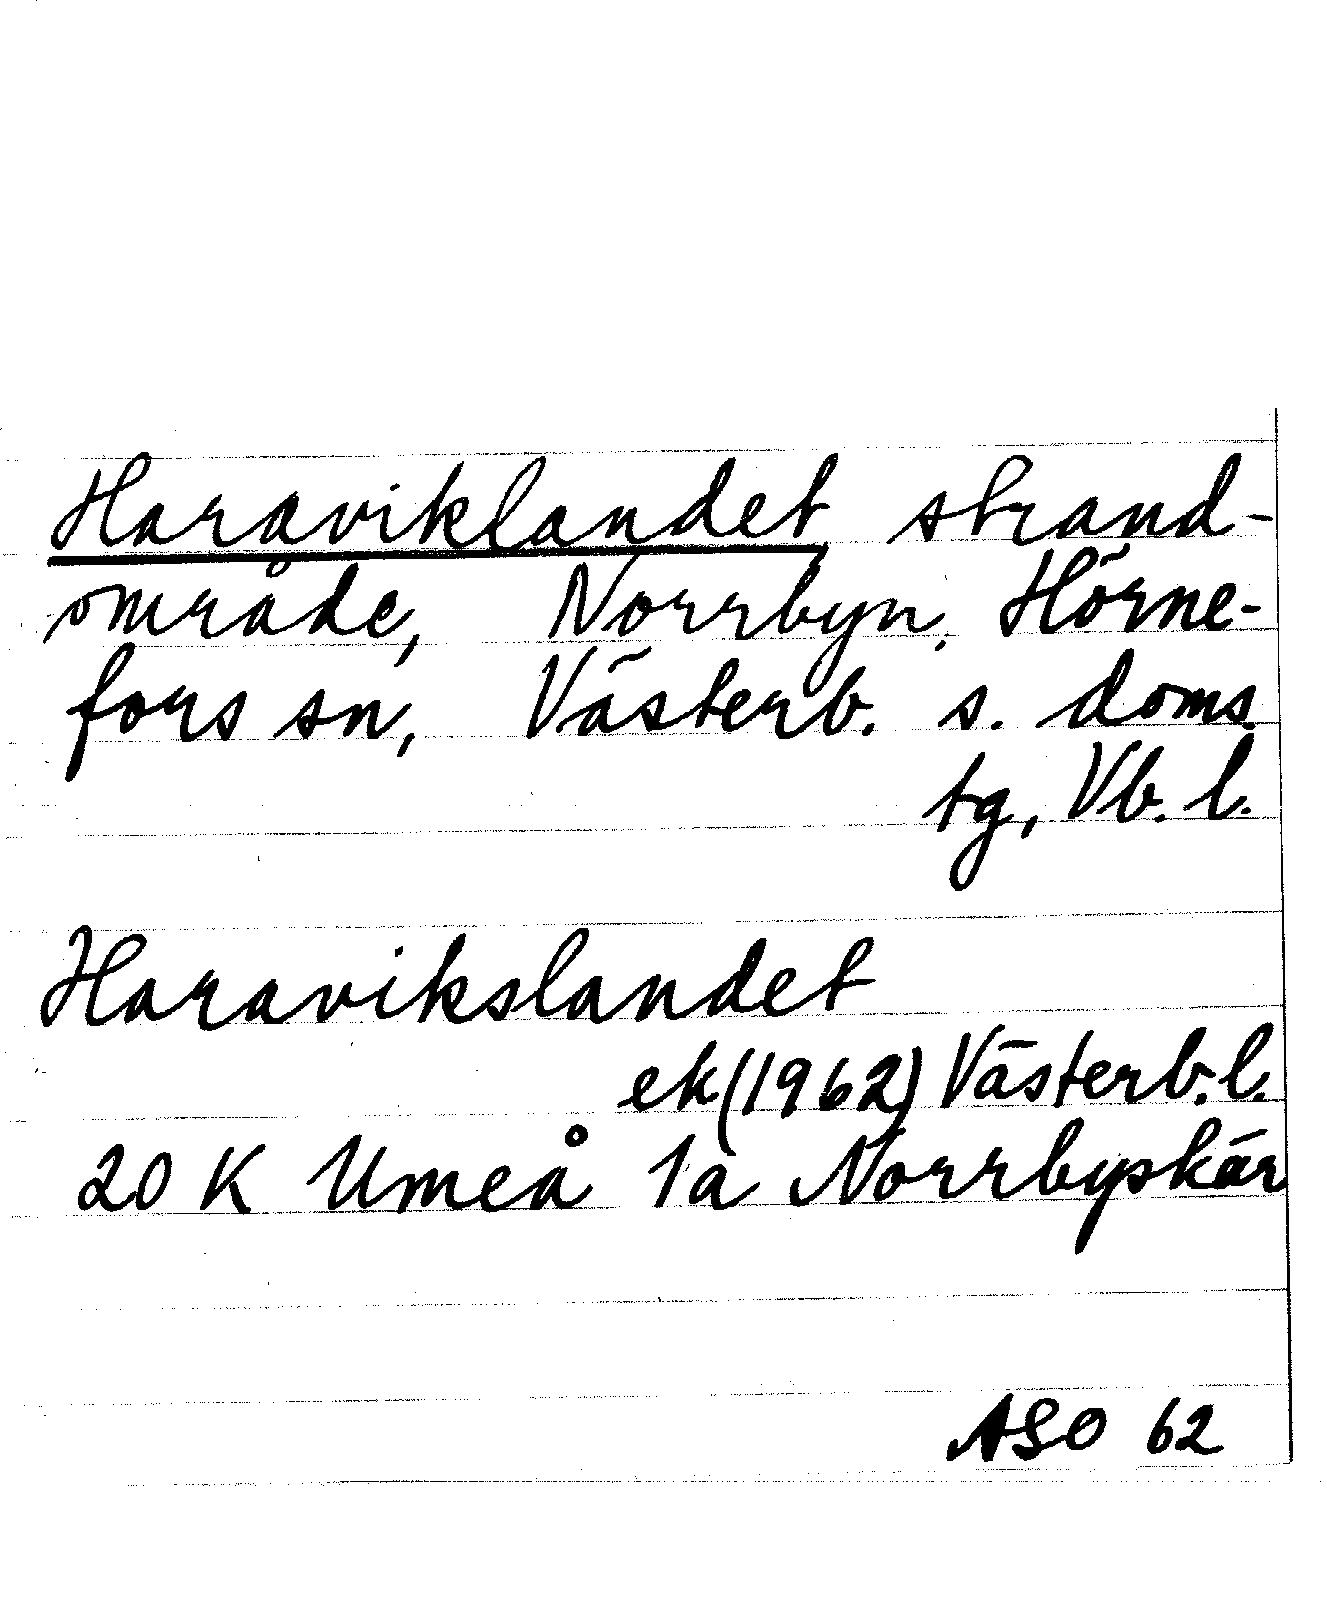 Haraviklandet, strand-
område, Norrbyn, Hörne-
fors sn, Västerb. s. doms.
tg, Vb. l.
Haravikslandet
ek (1962) Västerb. l.
20 K Umeå 1a Norrbyskär
ASO 62